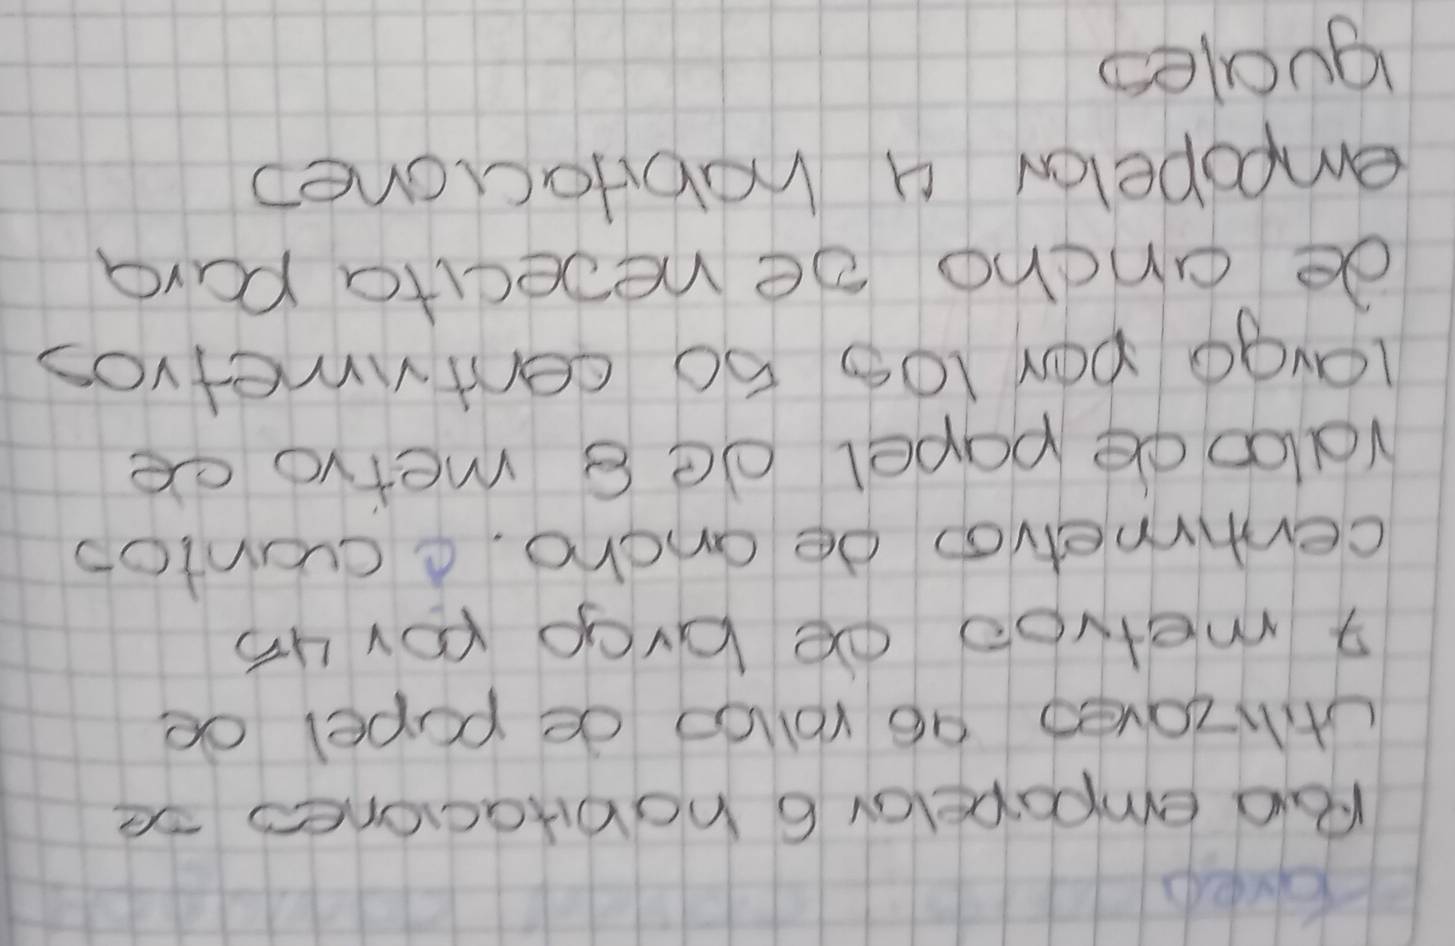 Tarea
Para empapelar 6 habitaciones se
utilizaron 96 rollos de papel de
7 metros de largo por 45
centimetros de ancho. ¿ cuantos
rollos de papel de 8 metro de
largo por los 50 centrimetros
de ancho se necesita para
empapelar 4 habitaciones
iguales